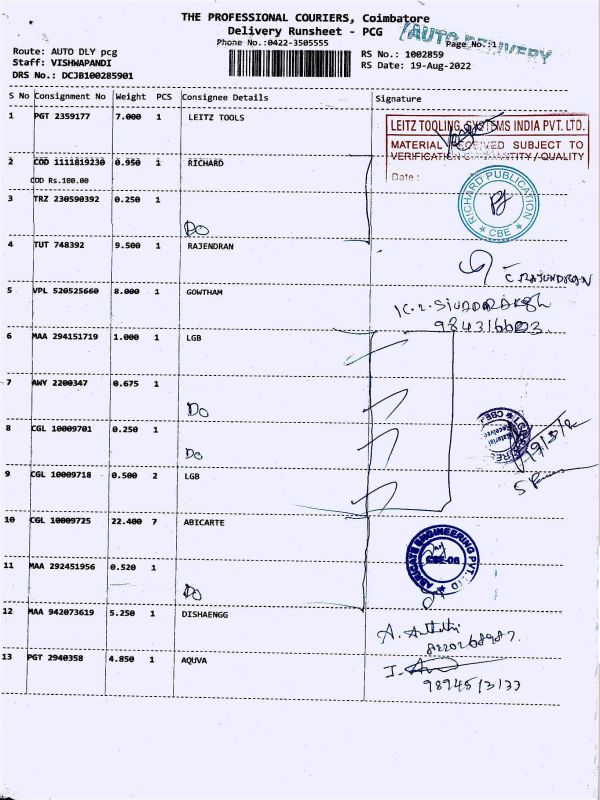 THE PROFESSIONAL COURIERS, Coimbatore
Delivery Runsheet - PCG
Phone No.:0422-3505555
Page No.:1
AUTO DELIVERY
Route: AUTO DLY pcg
Staff: VISHWAPANDI
DRS No.: DCJB100285901
RS No.: 1002859
RS Date: 19-Aug-2022
S No Consignment No Weight PCS Consignee Details Signature
1 PGT 2359177 7.000 1 LEITZ TOOLS
LEITZ TOOLING SYSTEMS INDIA PVT. LTD.
MATERIAL RECEIVED SUBJECT TO
VERIFICATION QUANTITY / QUALITY
Date :
2 COD 1111819230 0.950 1 RICHARD
COD Rs.100.00
RICHARD PUBLICATION
CBE
3 TRZ 230590392 0.250 1
Do
4 TUT 748392 9.500 1 RAJENDRAN
5 VPL 520525660 8.000 1 GOWTHAM
6 MAA 294151719 1.000 1 LGB
7 AWY 2200347 0.675 1
Do
8 CGL 10009701 0.250 1
Do
Material
Received
9 CGL 10009718 0.500 2 LGB
10 CGL 10009725 22.400 7 ABICARTE
CBE-06
11 MAA 292451956 0.520 1
Do
12 MAA 942073619 5.250 1 DISHAENGG
13 PGT 2940358 4.850 1 AQUVA